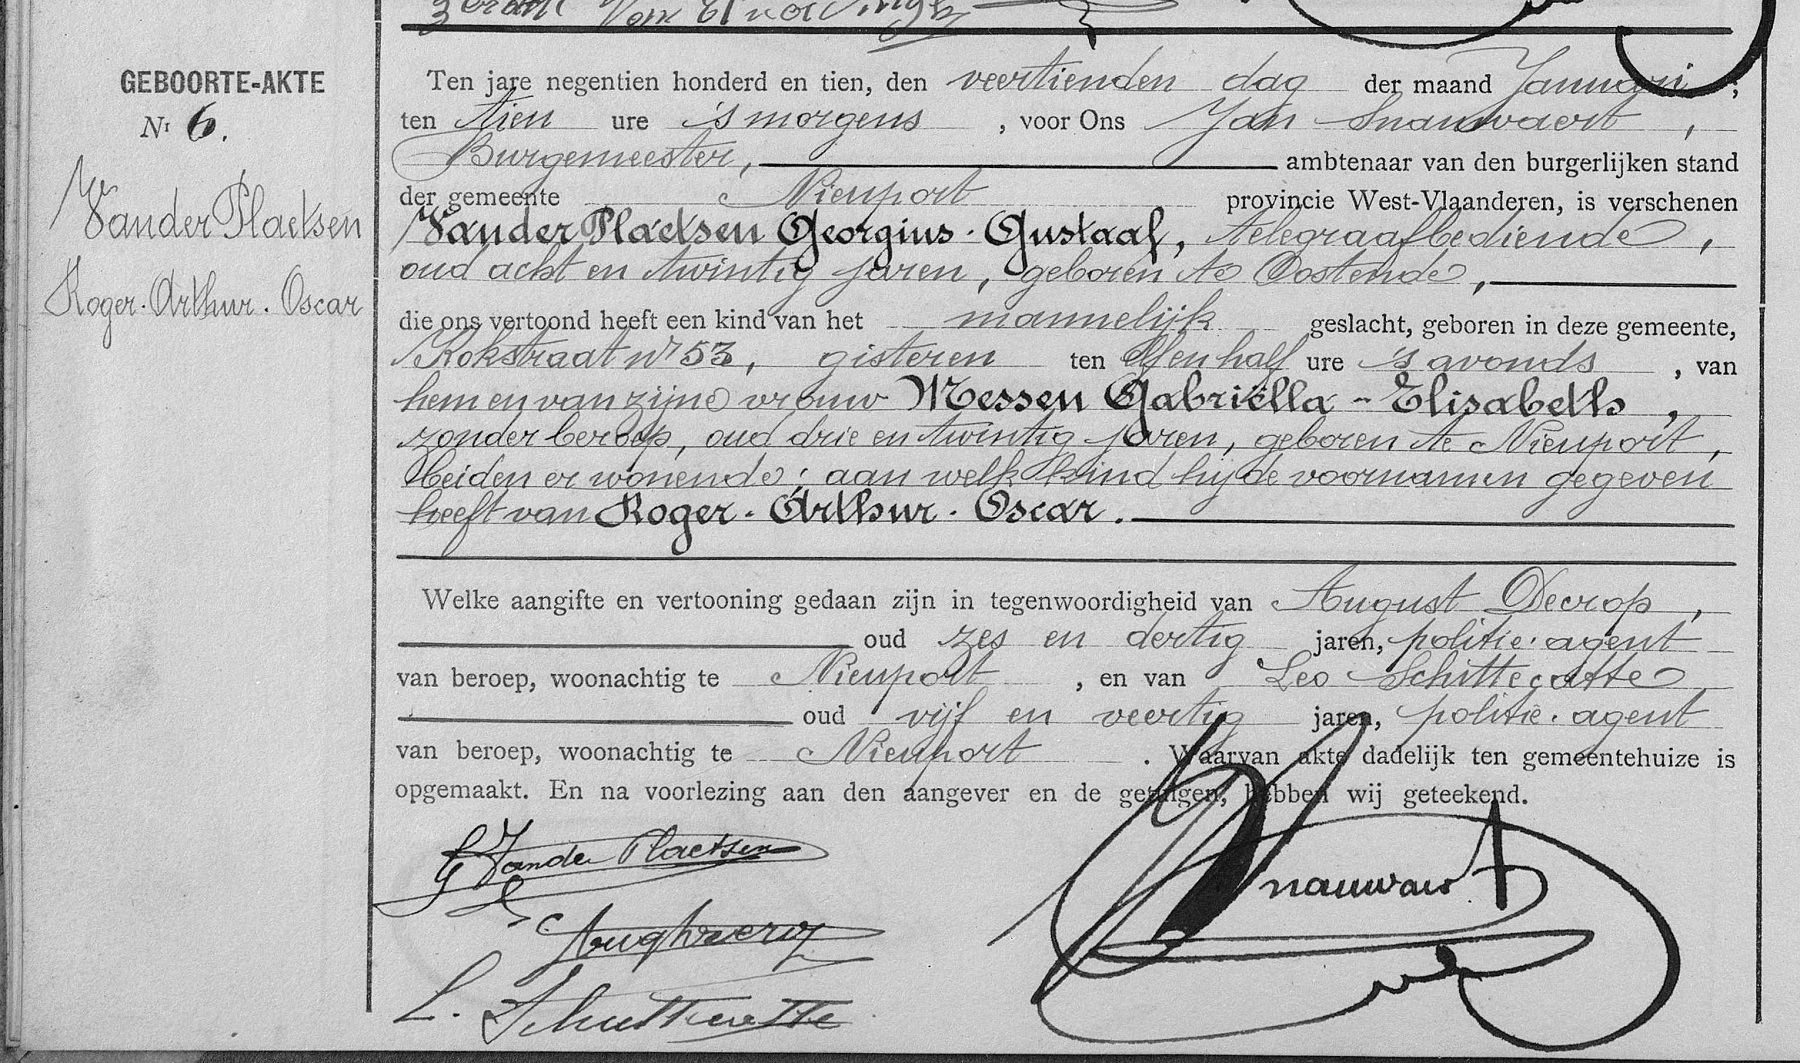 GEBOORTE-AKTE
Nr 6.
Vander Plaetsen
Roger-Arthur. Oscar
Ten jare negentien honderd en tien, den veertienden dag der maand Januari ;
ten tien ure 's morgens , voor Ons Jan Snauwaert ,
Burgemeester, ambtenaar van den burgerlijken stand
der gemeente Nieuport provincie West-Vlaanderen, is verschenen
Vander Plaetsen Georgius-Gustaaf, telegraafbediende ,
oud acht en twintig jaren, geboren te Oostende,
die ons vertoond heeft een kind van het mannelijk geslacht, geboren in deze gemeente,
Kokstraat nr 53, gisteren ten elf en half ure 's avonds , van
hem en van zijne vrouw Messen Gabriëlla-Elisabeth ,
zonder beroep, oud drie en twintig jaren, geboren te Nieuport,
beiden er wonende; aan welk kind hij de voornamen gegeven
heeft van Roger-Arthur-Oscar.
Welke aangifte en vertooning gedaan zijn in tegenwoordigheid van August Decrop,
oud zes en dertig jaren, politie-agent
van beroep, woonachtig te Nieuport , en van Leo Schittecatte
oud vijf en veertig jaren, politie-agent
van beroep, woonachtig te Nieuport . Waarvan akte dadelijk ten gemeentehuize is
opgemaakt. En na voorlezing aan den aangever en de getuigen, hebben wij geteekend.
G Vander Plaetsen
Snauwaert
L. Schittecatte